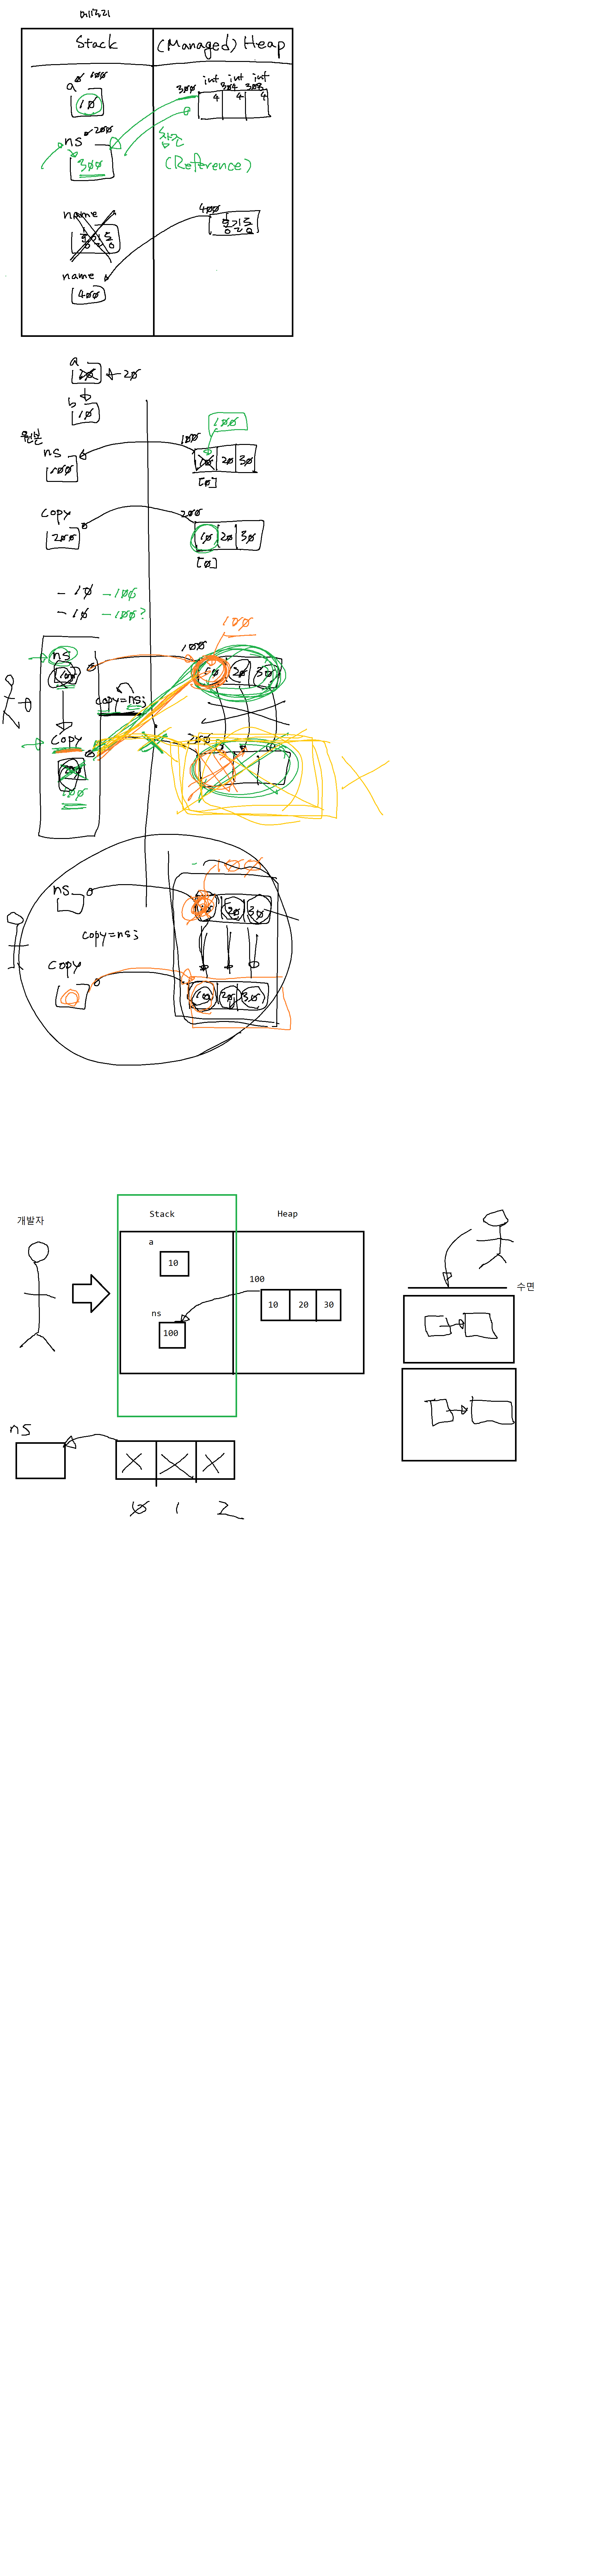 메모리
Stack (Managed) Heap
a 100
10
300 int int int
304 308
4 4 4
ns 200
300
참조
(Reference)
name
홍길동
400
홍길동
name
400
a
10 ← 20
b
10
원본
ns
100
100
100
10 20 30
[0]
copy
200
200
10 20 30
[0]
- 10 - 100
- 10 - 100?
ns
100
100
100
10 20 30
copy=ns;
copy
200
100
ns
1000
20 30
copy=ns;
copy
10 20 30
개발자
Stack Heap
a
10
100
10 20 30
ns
100
수면
ns
0 1 2